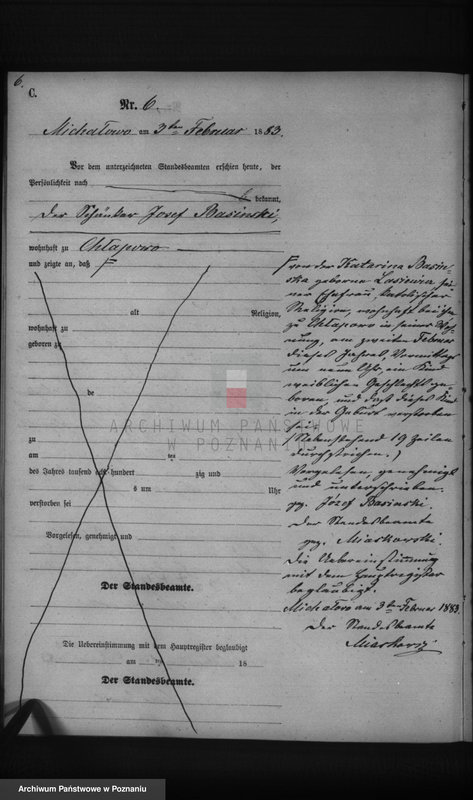 6.
C.
Nr. 6.
Michałowo am 3ten Februar 1883.
Vor dem unterzeichneten Standesbeamten erschien heute, der
Persönlichkeit nach
bekannt,
der Schänker Josef Basinski,
wohnhaft zu Chłapowo
und zeigte an, daß
alt Religion,
wohnhaft zu
geboren zu
de
zu
am ten
des Jahres tausend acht hundert zig und
s um Uhr
verstorben sei
Vorgelesen, genehmigt und
Der Standesbeamte.
Die Uebereinstimmung mit dem Hauptregister beglaubigt
am ten 18
Der Standesbeamte.
von der Katarina Basin-
ska geborene sei-
ner Ehefrau, katolischer
Religion, wohnhaft bei ihm
zu Chłapowo in seiner Woh-
nung, am zweiten Februar
dieses Jahres, Vormittags
um neun Uhr, ein Kind
weiblichen Geschlechts ge-
boren, und daß dieses Kind
in der Geburt verstorben
sei.
(Nebenstehend 19 Zeilen
durchstrichen.)
Vorgelesen, genehmigt
und unterschrieben
gez. Józef Basinski.
Der Standesbeamte
gez. Miaskowski.
Die Uebereinstimmung
mit dem Hauptregister
beglaubigt.
Michałowo am 3ten Februar 1883.
Der Standesbeamte
ARCHIWUM PAŃSTWOWE
W POZNANIU
Archiwum Państwowe w Poznaniu